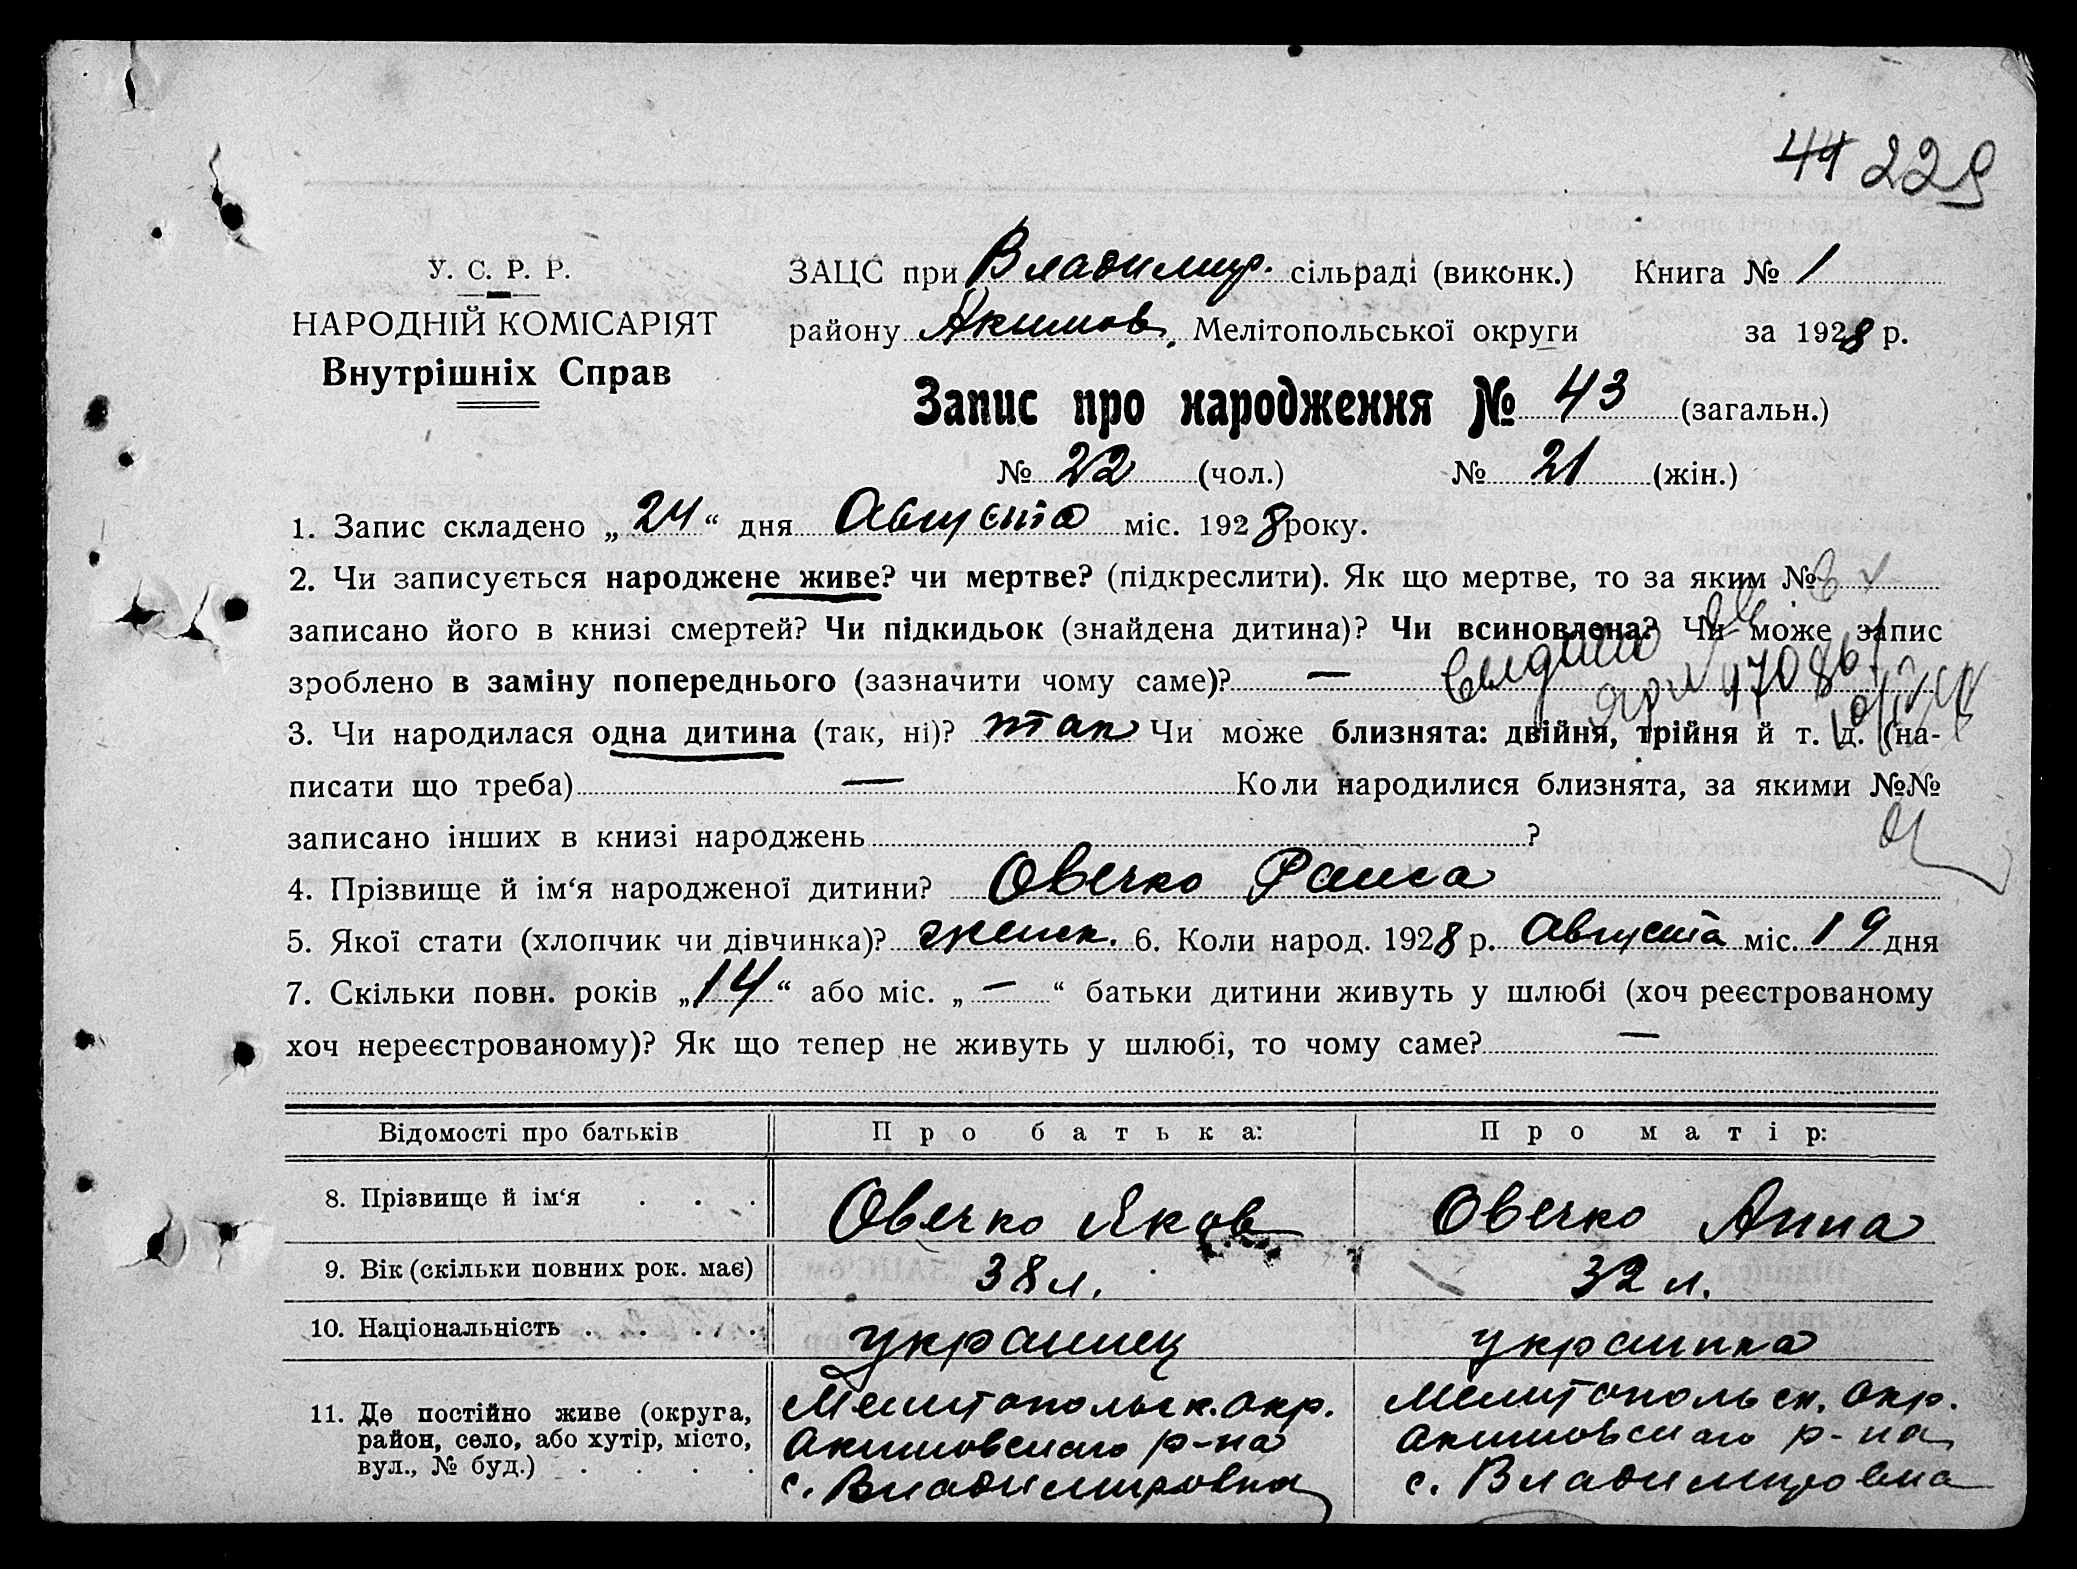 44 229
У. С. Р. Р.
НАРОДНІЙ КОМІСАРІЯТ
Внутрішніх Справ
ЗАЦС при Владимир. сільраді (виконк.) Книга № 1
району Акимов. Мелітопольської округи за 1928 р.
Запис про народження № 43 (загальн.)
№ 22 (чол.) № 21 (жін.)
1. Запис складено „24“ дня Августа міс. 1928 року.
2. Чи записується народжене живе? чи мертве? (підкреслити). Як що мертве, то за яким №
записано його в книзі смертей? Чи підкидьок (знайдена дитина)? Чи всиновлена? Чи може запис
зроблено в заміну попереднього (зазначити чому саме)? —
3. Чи народилася одна дитина (так, ні)? так Чи може близнята: двійня, трійня й т. д. (на-
писати що треба) — Коли народилися близнята, за якими №№
записано інших в книзі народжень ?
4. Прізвище й ім‘я народженої дитини? Овечко Раиса
5. Якої стати (хлопчик чи дівчинка)? женск. 6. Коли народ. 1928 р. Августа міс. 19 дня
7. Скільки повн. років „14“ або міс. „—“ батьки дитини живуть у шлюбі (хоч реєстрованому
хоч нереєстрованому)? Як що тепер не живуть у шлюбі, то чому саме? —
Відомості про батьків Про батька: Про матір:
8. Прізвище й ім‘я . . . Овечко Яков Овечко Анна
9. Вік (скільки повних рок. має) 38 л. 32 л.
10. Національність . . . . украинец украинка
11. Де постійно живе (округа, Мелитопольск. окр. Мелитопольск. окр.
район, село, або хутір, місто, Акимовского р-на Акимовского р-на
вул., № буд.) . . . . с. Владимировка с. Владимировка